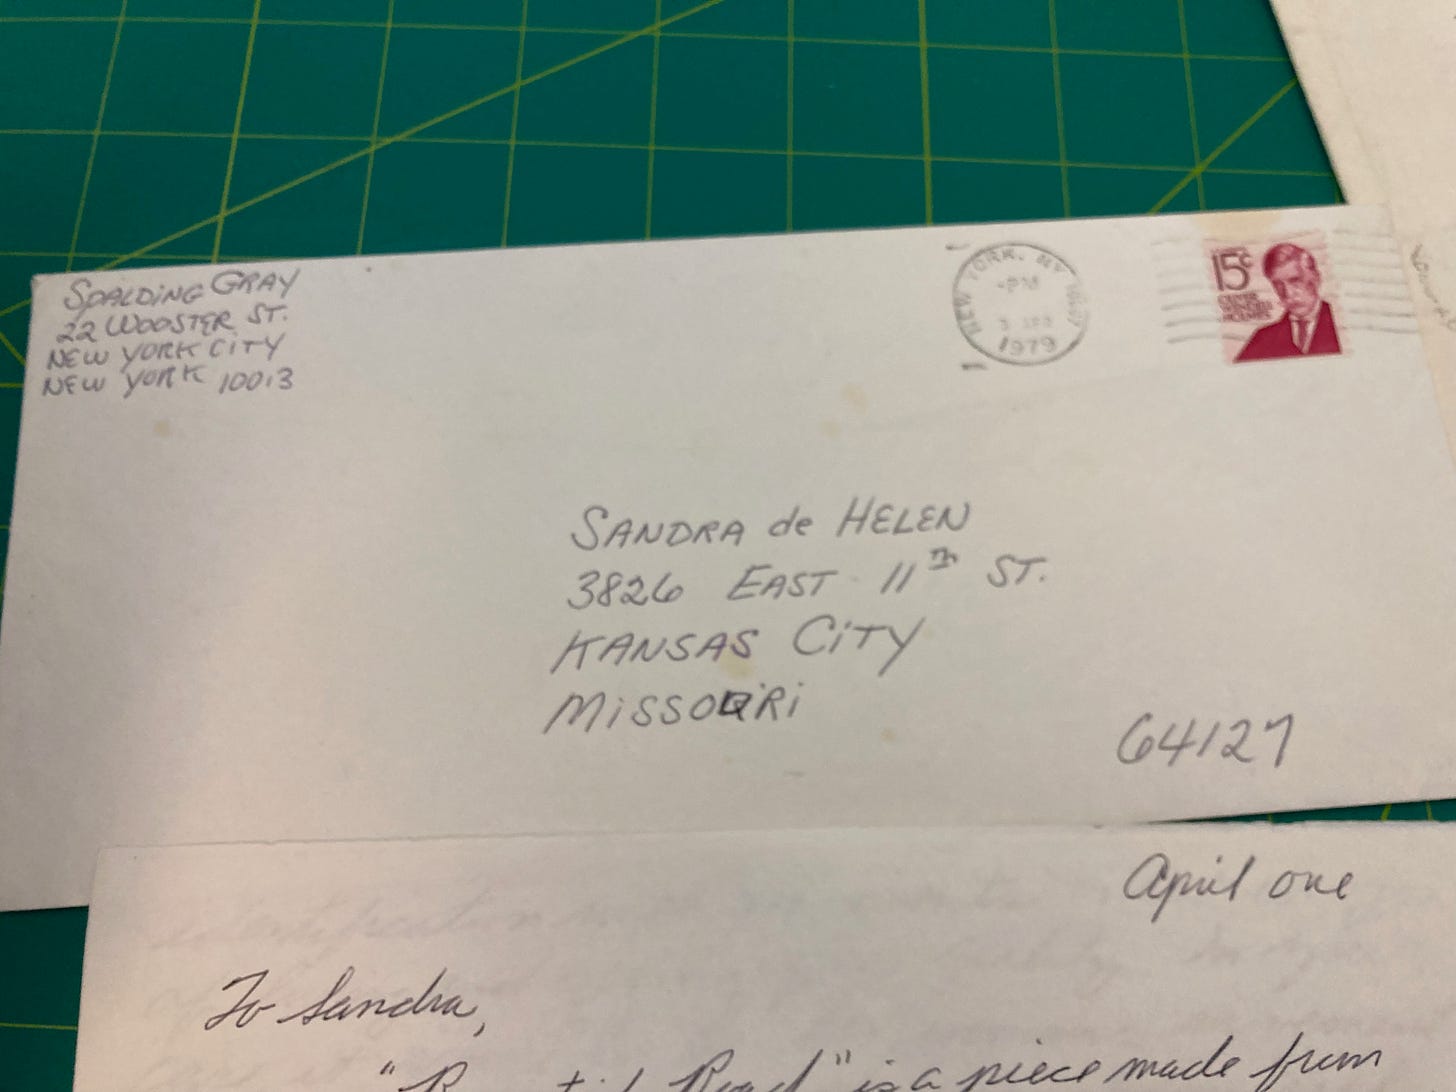 SPALDiNG GRAY
22 WOOSTER ST.
NEW YORK CiTY
NEW YORK 10013
NEW YORK, NY
PM
1979
15¢
OLIVER
WENDELL
HOLMES
SANDRA de HELEN
3826 EAST 11TH ST.
KANSAS CiTY
MiSSOURi
64127
April one
To Sandra,
Road" is a piece made from